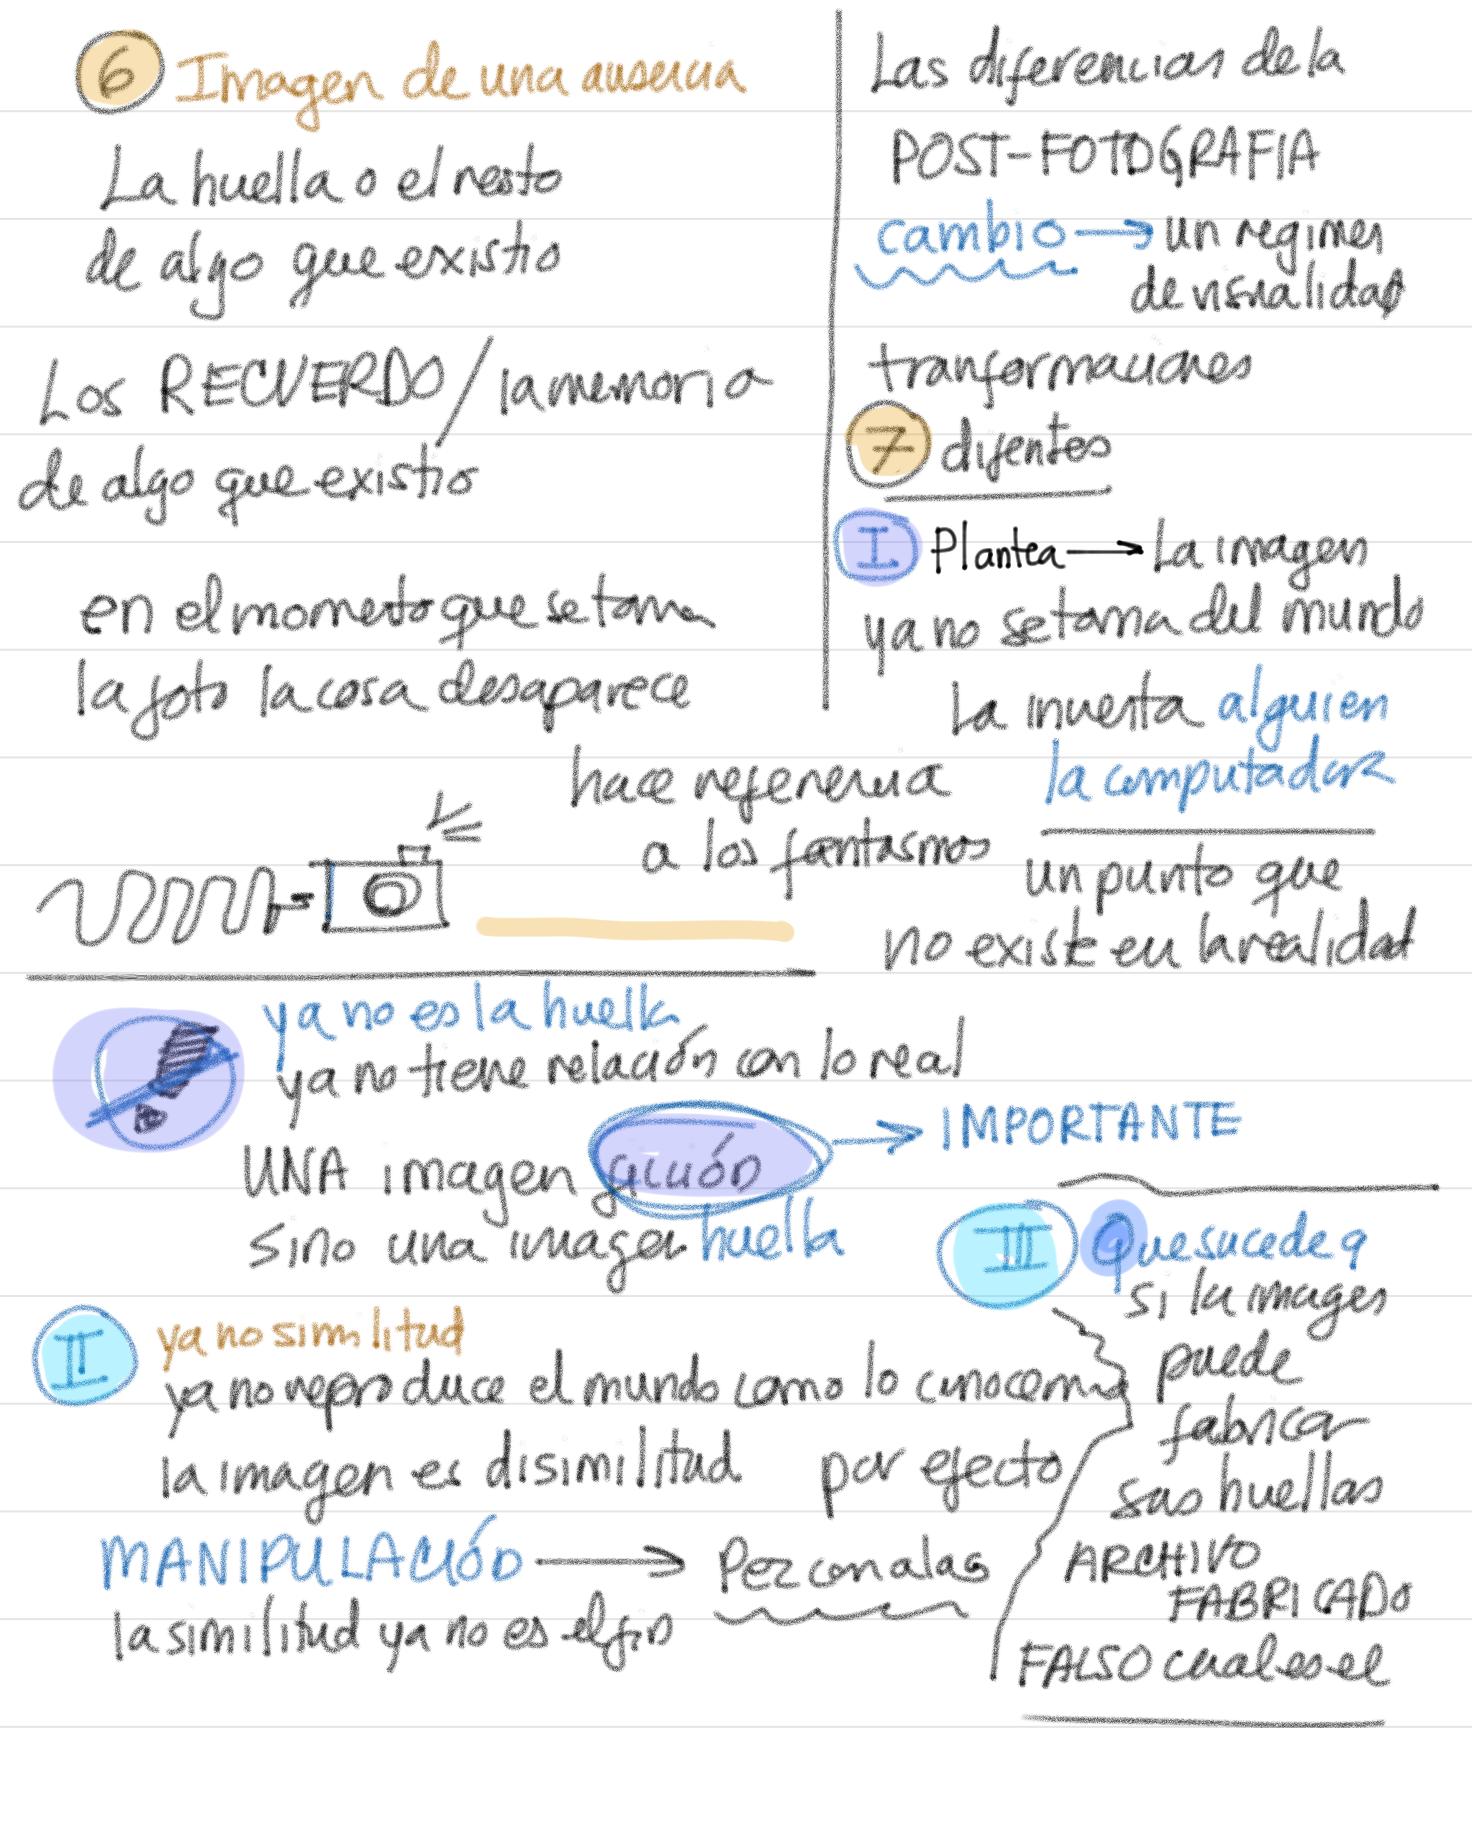 6 Imagen de una ausencia
La huella o el resto
de algo que existio
Los RECUERDO / la memoria
de algo que existio
en el mometo que se toma
la foto la cosa desaparece
hace referencia
a los fantasmos
Las diferencias de la
POST-FOTOGRAFIA
cambio → un regimen
de visualidad
tranformaciones
7 difentes
I Plantea → La imagen
ya no se toma del mundo
La inventa alguien
la computadora
un punto que
no existe en la realidad
ya no es la huella
ya no tiene relación con lo real
UNA imagen → IMPORTANTE
sino una imagen huella
II ya no similitud
ya no reproduce el mundo como lo conocemos
la imagen es disimilitud por efecto
MANIPULACIÓN → Pez con alas
la similitud ya no es el fin
III Que sucede q
si la imagen
puede
fabricar
sus huellas
ARCHIVO
FABRICADO
FALSO cual es el